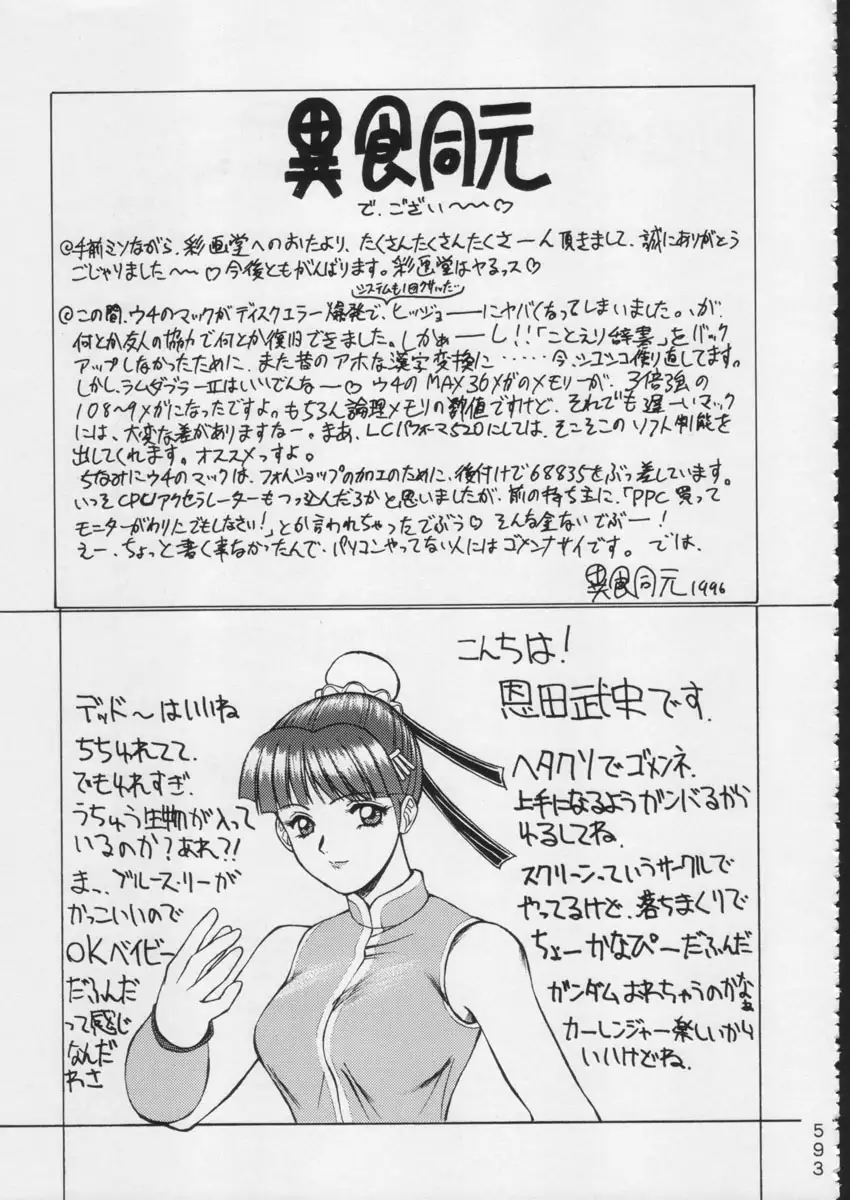 異食同元
で、ござい〜〜♡
◎手前ミソながら、彩画堂へのおたより、たくさんたくさんたくさーん頂きまして、誠にありがとう
ごじゃりました〜〜♡今後ともがんばります。彩画堂はヤるっス♡
システムも1回クサッた…
◎この間、ウチのマックがディスクエラー爆発で、ヒッジョーーにヤバくなってしまいました。が、
何とか友人の協力で何とか復旧できました。しかぁーーし!!「ことえり辞書」をバック
アップしなかったために、また昔のアホな漢字変換に……今、シコシコ作り直してます。
しかし、ラムダブラーⅡはいいでんなー♡ウチのMAX36メガのメモリーが、3倍強の
108〜9メガになったですよ。もちろん論理メモリの数値ですけど、それでも遅ーいマック
には、大変な差がありますなー。まあ、LCパフォーマ520にしては、そこそこのソフト制能を
出してくれます。オススメっすよ。
ちなみにウチのマックは、フォトショップの加工のために、後付けで68835をぶっ差しています。
いっそCPUアクセラレーターもつっ込んだろかと思いましたが、前の持ち主に、「PPC買って
モニターがわりにでもしなさい!」とか言われちゃったでぶう♡そんな金ないでぶー!
えー、ちょっと書く事なかったんで、パソコンやってない人にはゴメンナサイです。では、
異食同元1996
こんちは!
恩田武史です.
ヘタクソでゴメンネ.
上手になるようガンバるから
ゆるしてね.
スクリーンっていうサークルで
やってるけど、落ちまくりで
ちょーかなぴーだふんだ
ガンダムおわちゃうのかなぁ
カーレンジャー楽しいから
いいけどね.
デッド〜はいいね
ちちゆれてて.
でもゆれすぎ.
うちゅう生物が入って
いるのか?あれ?!
まっ、ブルース・リーが
かっこいいので
OKベイビー
だふんだ
って感じ
なんだ
わさ
593